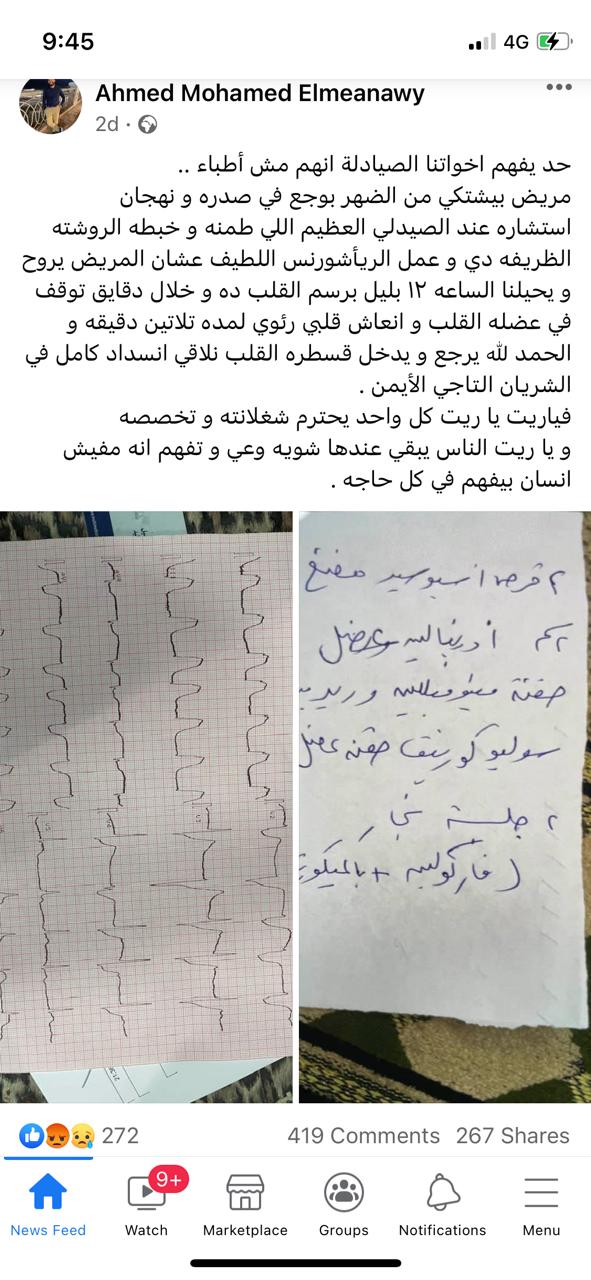 9:45
4G
Ahmed Mohamed Elmeanawy
2d
حد يفهم اخواتنا الصيادلة انهم مش أطباء ..
مريض بيشتكي من الضهر بوجع في صدره و نهجان
استشاره عند الصيدلي العظيم اللي طمنه و خبطه الروشته
الظريفه دي و عمل الريأشورنس اللطيف عشان المريض يروح
و يحيلنا الساعه ١٢ بليل برسم القلب ده و خلال دقايق توقف
في عضله القلب و انعاش قلبي رئوي لمده تلاتين دقيقه و
الحمد لله يرجع و يدخل قسطره القلب نلاقي انسداد كامل في
الشريان التاجي الأيمن .
فياريت يا ريت كل واحد يحترم شغلانته و تخصصه
و يا ريت الناس يبقي عندها شويه وعي و تفهم انه مفيش
انسان بيفهم في كل حاجه .
٢ قرص اسبوسيد مضغ
أدرينالين عضل
حقنة
سوليو كورتيف حقنة عضل
٢ جلسة بخار
(فاركولين +
272
419 Comments
267 Shares
9+
News Feed
Watch
Marketplace
Groups
Notifications
Menu